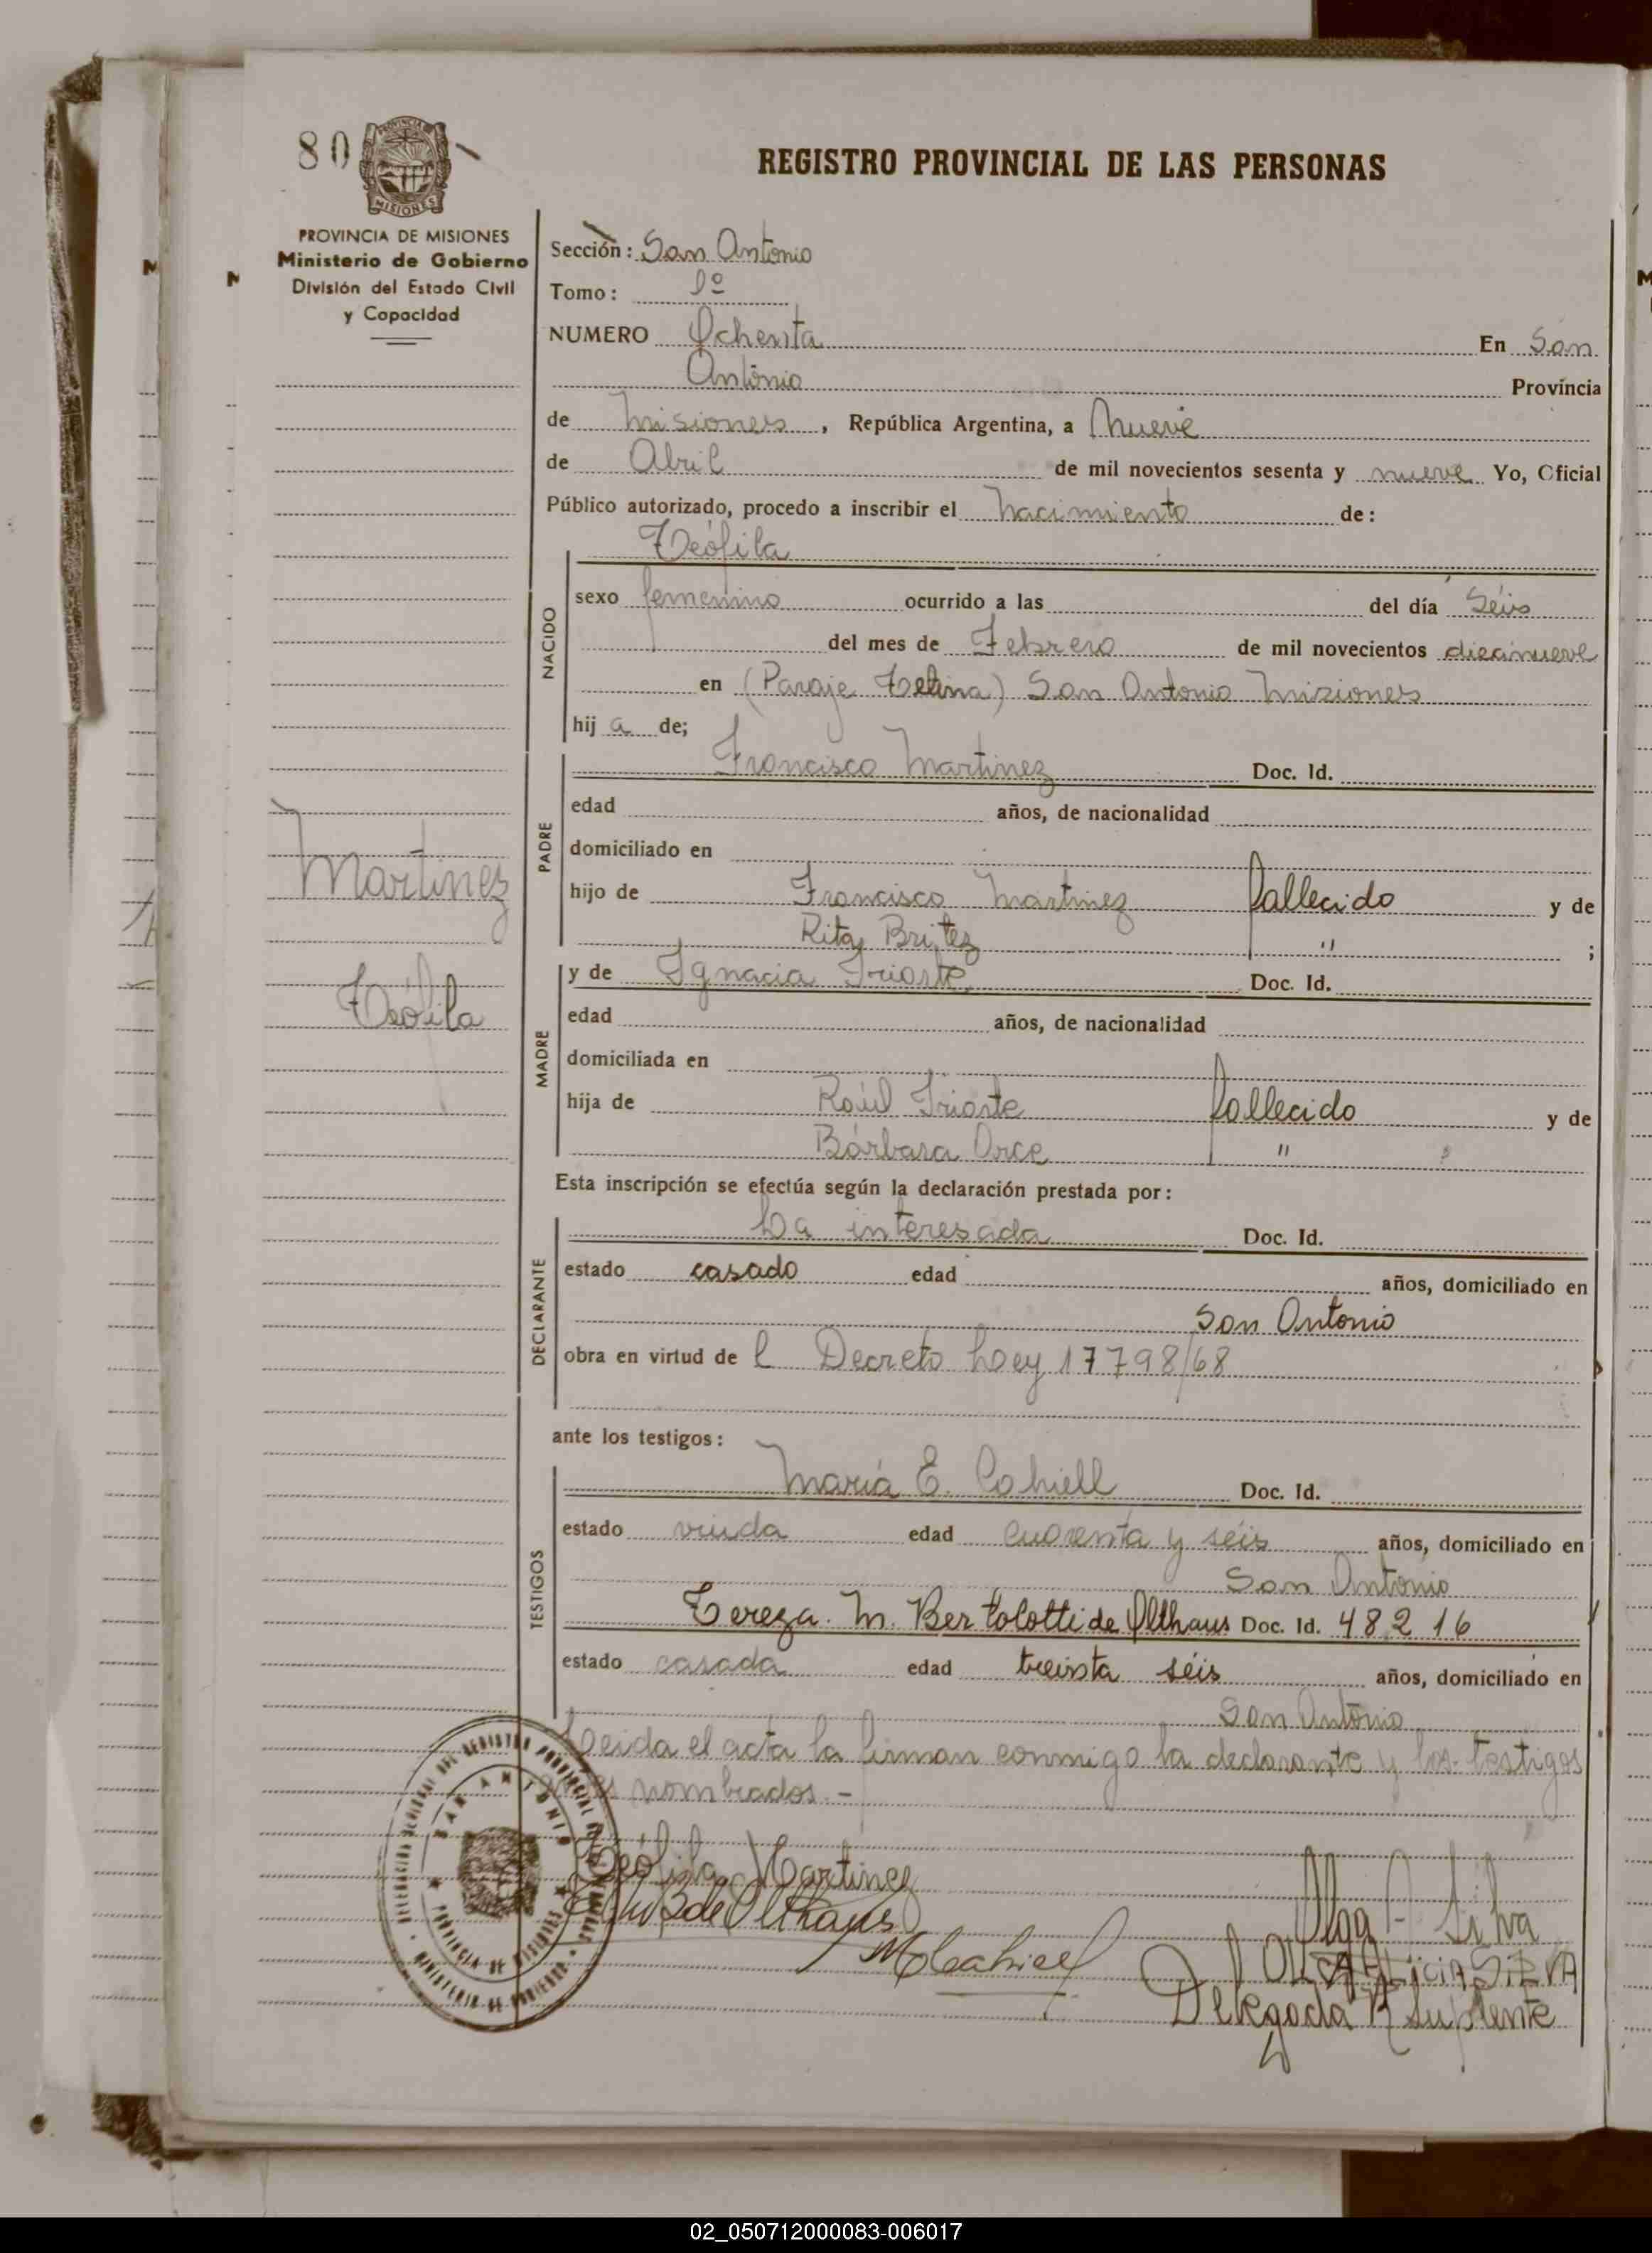 80
REGISTRO PROVINCIAL DE LAS PERSONAS
PROVINCIA DE MISIONES
Ministerio de Gobierno
División del Estado Civil
y Capacidad
Sección: San Antonio
Tomo: 1º
NUMERO Ochenta En San
Antonio Provincia
de Misiones, República Argentina, a Nueve
de Abril de mil novecientos sesenta y nueve Yo, Oficial
Público autorizado, procedo a inscribir el Nacimiento de:
Teófila
NACIDO
sexo femenino ocurrido a las del día Séis
del mes de Febrero de mil novecientos diecinueve
en (Paraje) San Antonio Misiones
hij a de;
PADRE
Francisco Martinez Doc. Id.
edad años, de nacionalidad
domiciliado en
hijo de Francisco Martinez fallecido y de
Rita Britez " ;
Martinez
Teófila
MADRE
y de Ignacia Iriarte Doc. Id.
edad años, de nacionalidad
domiciliada en
hija de Raúl Iriarte fallecido y de
Bárbara Orce "
Esta inscripción se efectúa según la declaración prestada por:
DECLARANTE
La interesada Doc. Id.
estado casado edad años, domiciliado en
San Antonio
obra en virtud de l Decreto Ley 17798/68
ante los testigos:
TESTIGOS
María E. Cohiell Doc. Id.
estado viuda edad cuarenta y séis años, domiciliado en
San Antonio
Tereza. M. Bertolotti de Olthaus Doc. Id. 48216
estado casada edad treinta séis años, domiciliado en
San Antonio
Leida el acta la firman conmigo la declarante y los testigos
nombrados.-
Teófila Martinez
B de Olthaus
Olga A Silva
OLGA ALICIA SILVA
Delegada R Suplente
SAN ANTONIO
PROVINCIA DE MISIONES
02_050712000083-006017